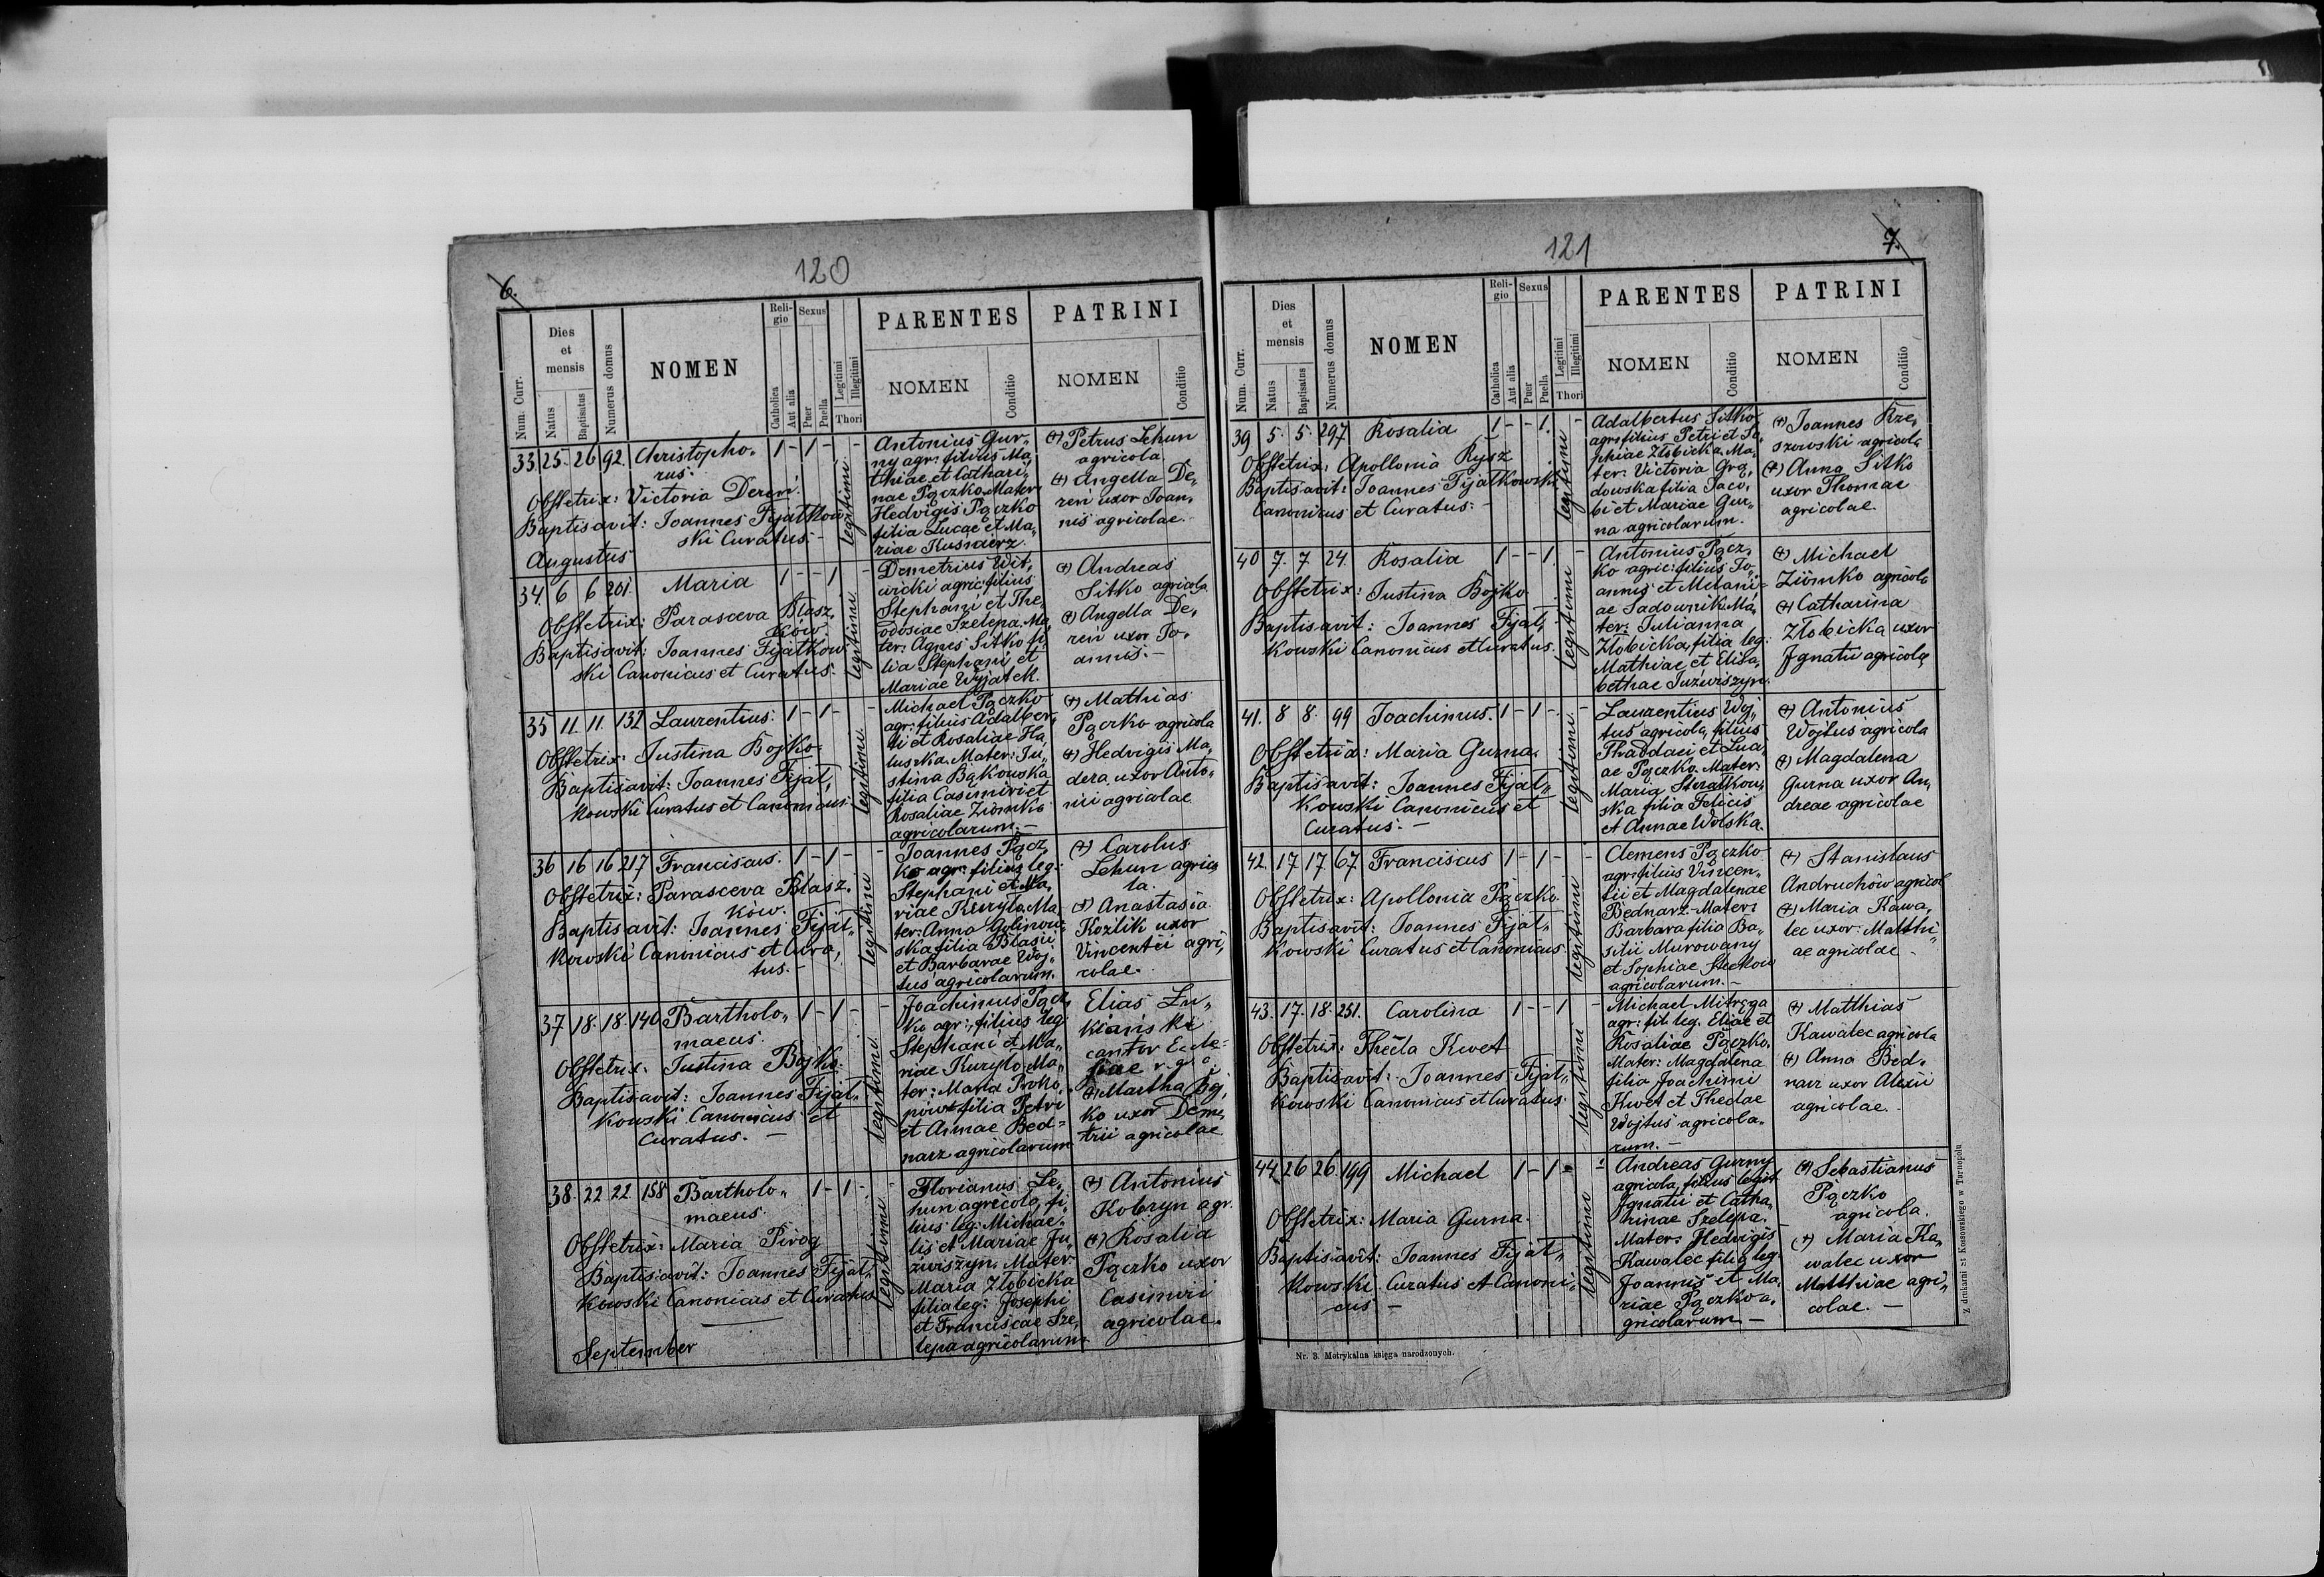 6.
120
Num. Curr.
Dies et mensis
Natus
Baptisatus
Numerus domus
NOMEN
Religio
Catholica
Aut alia
Sexus
Puer
Puella
Legitimi
Illegitimi
Thori
PARENTES
NOMEN
Conditio
PATRINI
NOMEN
Conditio
33. 25. 26. 92. Christopho„ 1 - 1 - -
rus.
Obstetrix: Victoria Dereń.
Baptisavit: Joannes Fijałkow„
ski Curatus. -
legitimi
Antonius Gur„
ny agr: filius Ma„
thiae et Cathari„
nae Pączko. Mater:
Hedvigis Pączko
filia Lucae et Ma„
riae Kuśnierz.
(+) Petrus Lehun
agricola
(+) Angella De„
reń uxor Joan„
nis agricolae.
Augustus
34. 6 6 201. Maria 1 - - 1 -
Obstetrix: Parasceva Błasz„
ków
Baptisavit: Joannes Fijałkow„
ski Canonicus et Curatus. -
legitimi
Demetrius Wit„
wicki agric: filius
Stephani et The„
odosiae Szelepa. Ma„
ter: Agnes Sitko fi„
lia Stephani et
Mariae Wyjatek.
(+) Andreas
Sitko agricola
(+) Angella De„
reń uxor Jo„
annis. -
35 11. 11. 132 Laurentius. 1 - 1 - -
Obstetrix: Justina Bojko.
Baptisavit: Joannes Fijał„
kowski Curatus et Canonicus.
legitimi
Michael Pączko
agr: filius Adalber„
ti et Rosaliae Ha„
luszka. Mater: Ju„
stina Bąkowska
filia Casimiri et
Rosaliae Ziomko
agricolarum. -
(+) Mathias
Pączko agricola
(+) Hedvigis Ma„
dera uxor Anto„
nii agricolae
36 16 16 217 Franciscus. 1 - 1 - -
Obstetrix: Parasceva Błasz„
ków.
Baptisavit: Joannes Fijał„
kowski Canonicus et Cura„
tus. -
legitimi
Joannes Pącz„
ko agr: filius leg:
Stephani et Ma„
riae Kuryło. Ma„
ter: Anna Golinow„
ska filia Blasii
et Barbarae Woj„
tus agricolarum.
(+) Carolus
Lehun agrico„
la.
(+) Anastasia
Kozlik uxor
Vincentii agri„
colae.
37 18. 18. 140 Bartholo„ 1 - 1 - -
maeus.
Obstetrix. Justina Bojko.
Baptisavit: Joannes Fijał„
kowski Canonicus et
Curatus. -
legitimi
Joachimus Pącz„
ko agr:, filius leg:
Stephani et Ma„
riae Kuryło. Ma„
ter: Maria Proko„
pów filia Petri
et Annae Bed=
narz agricolarum
Elias Łu„
kianski
cantor Eccle=
siae r. gr. c
(+) Martha Boj„
ko uxor Deme„
trii agricolae
38. 22 22 158 Bartholo„ 1 - 1 - -
maeus.
Obstetrix: Maria Piróg
Baptisavit: Joannes Fijał„
kowski Canonicus et Curatus
legitimi
Florianus Le„
hun agricola, fi„
lius leg: Michae„
lis et Mariae Ju„
zwiszyn. Mater
Maria Złobicka
filia leg: Josephi
et Franciscae Sze„
lepa agricolarum.
(+) Antonius
Kobryn agr.
(+) Rosalia
Pączko uxor
Casimiri
agricolae.
September
121
7.
Num. Curr.
Dies et mensis
Natus
Baptisatus
Numerus domus
NOMEN
Religio
Catholica
Aut alia
Sexus
Puer
Puella
Legitimi
Illegitimi
Thori
PARENTES
NOMEN
Conditio
PATRINI
NOMEN
Conditio
39 5. 5. 297 Rosalia 1 - - 1. -
Obstetrix: Apollonia Rysz
Baptisavit: Joannes Fijałkowski
Canonicus et Curatus. -
legitimi
Adalbertus Sitko
agr: filius Petri et So„
phiae Złobicka. Ma„
ter: Victoria Gra„
dowska filia Jaco„
bi et Mariae Gur„
na agricolarum.
(+) Joannes Rze„
szowski agricola
(+) Anna Sitko
uxor Thomae
agricolae.
40 7. 7 24. Rosalia 1 - - 1. -
Obstetrix: Justina Bojko
Baptisavit: Joannes Fijał„
kowski Canonicus et Curatus.
legitimi
Antonius Pącz„
ko agric: filius Jo„
annis et Melani=
ae Sadownik. Ma„
ter: Julianna
Złobicka, filia leg:
Mathiae et Elisa„
bethae Juzwiszyn.
(+) Michael
Ziomko agricola
(+) Catharina
Złobicka uxor
Ignatii agricola
41. 8 8. 99 Joachimus. 1 - 1 - -
Obstetrix: Maria Gurna.
Baptisavit: Joannes Fijał„
kowski Canonicus et
Curatus. -
legitimi
Laurentius Woj„
tus agricola, filius
Thaddaei et Luci„
ae Pączko. Mater:
Maria
ska filia Felicis
et Annae Wolska.
(+) Antonius
Wojtus agricola
(+) Magdalena
Gurna uxor An„
dreae agricolae
42. 17 17 67 Franciscus 1 - 1 - -
Obstetrix: Apollonia Pączko
Baptisavit: Joannes Fijał„
kowski Curatus et Canonicus.
legitimi
Clemens Pączko
agr: filius Vincen„
tii et Magdalenae
Bednarz - Mater:
Barbara filia Ba„
silii Murowany
et Sophiae Steckow
agricolarum. -
(+) Stanislaus
Andruchów agricol
(+) Maria Kawa„
lec uxor: Matthi„
ae agricolae -
43. 17. 18. 251. Carolina 1 - - 1 -
Obstetrix: Thecla Kwet
Baptisavit: Joannes Fijał„
kowski Canonicus et Curatus.
legitimi
Michael Mitręga
agr: fil. leg. Eliae et
Rosaliae Pączko.
Mater: Magdalena
filia Joachimi
Kwet et Theclae
Wojtus agricola„
rum. -
(+) Matthias
Kawalec agricola
(+) Anna Bed„
narz uxor Alexii
agricolae. -
44. 26 26. 199 Michael 1 - 1 -
Obstetrix: Maria Gurna.
Baptisavit: Joannes Fijał„
kowski Curatus et Canoni„
cus -
legitimi
Andreas Gurny
agricola, filius legit
Ignatii et Catha„
rinae Szelepa.
Mater: Hedvigis
Kawalec filia leg.
Joannis et Ma„
riae Pączko a„
gricolarum. -
(+) Sebastianus
Pączko
agricola.
(+) Maria Ka„
walec uxor
Matthiae agri„
colae. -
Nr. 3. Metrykalna księga narodzonych.
Z drukarni St Kossowskiego w Tarnopolu